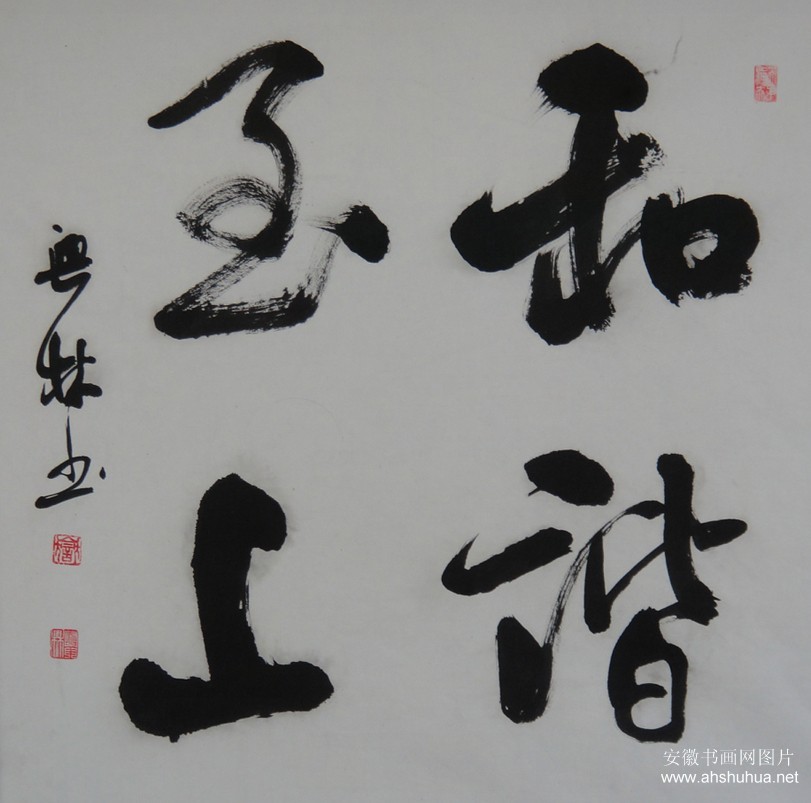 和谐
至上
林书
安徽书画网图片
www.ahshuhua.net